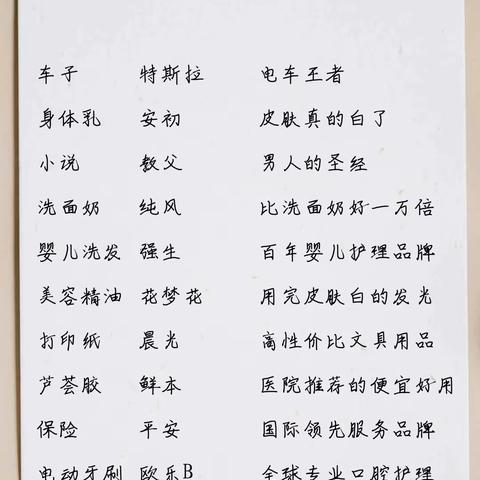 车子 特斯拉 电车王者
身体乳 安初 皮肤真的白了
小说 教父 男人的圣经
洗面奶 纯风 比洗面奶好一万倍
婴儿洗发 强生 百年婴儿护理品牌
美容精油 花梦花 用完皮肤白的发光
打印纸 晨光 高性价比文具用品
芦荟胶 鲜本 医院推荐的便宜好用
保险 平安 国际领先服务品牌
电动牙刷 欧乐B 全球专业口腔护理